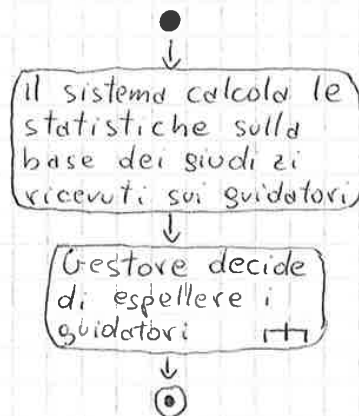 il sistema calcola le
statistiche sulla
base dei giudizi
ricevuti sui guidatori
Gestore decide
di espellere i
guidatori